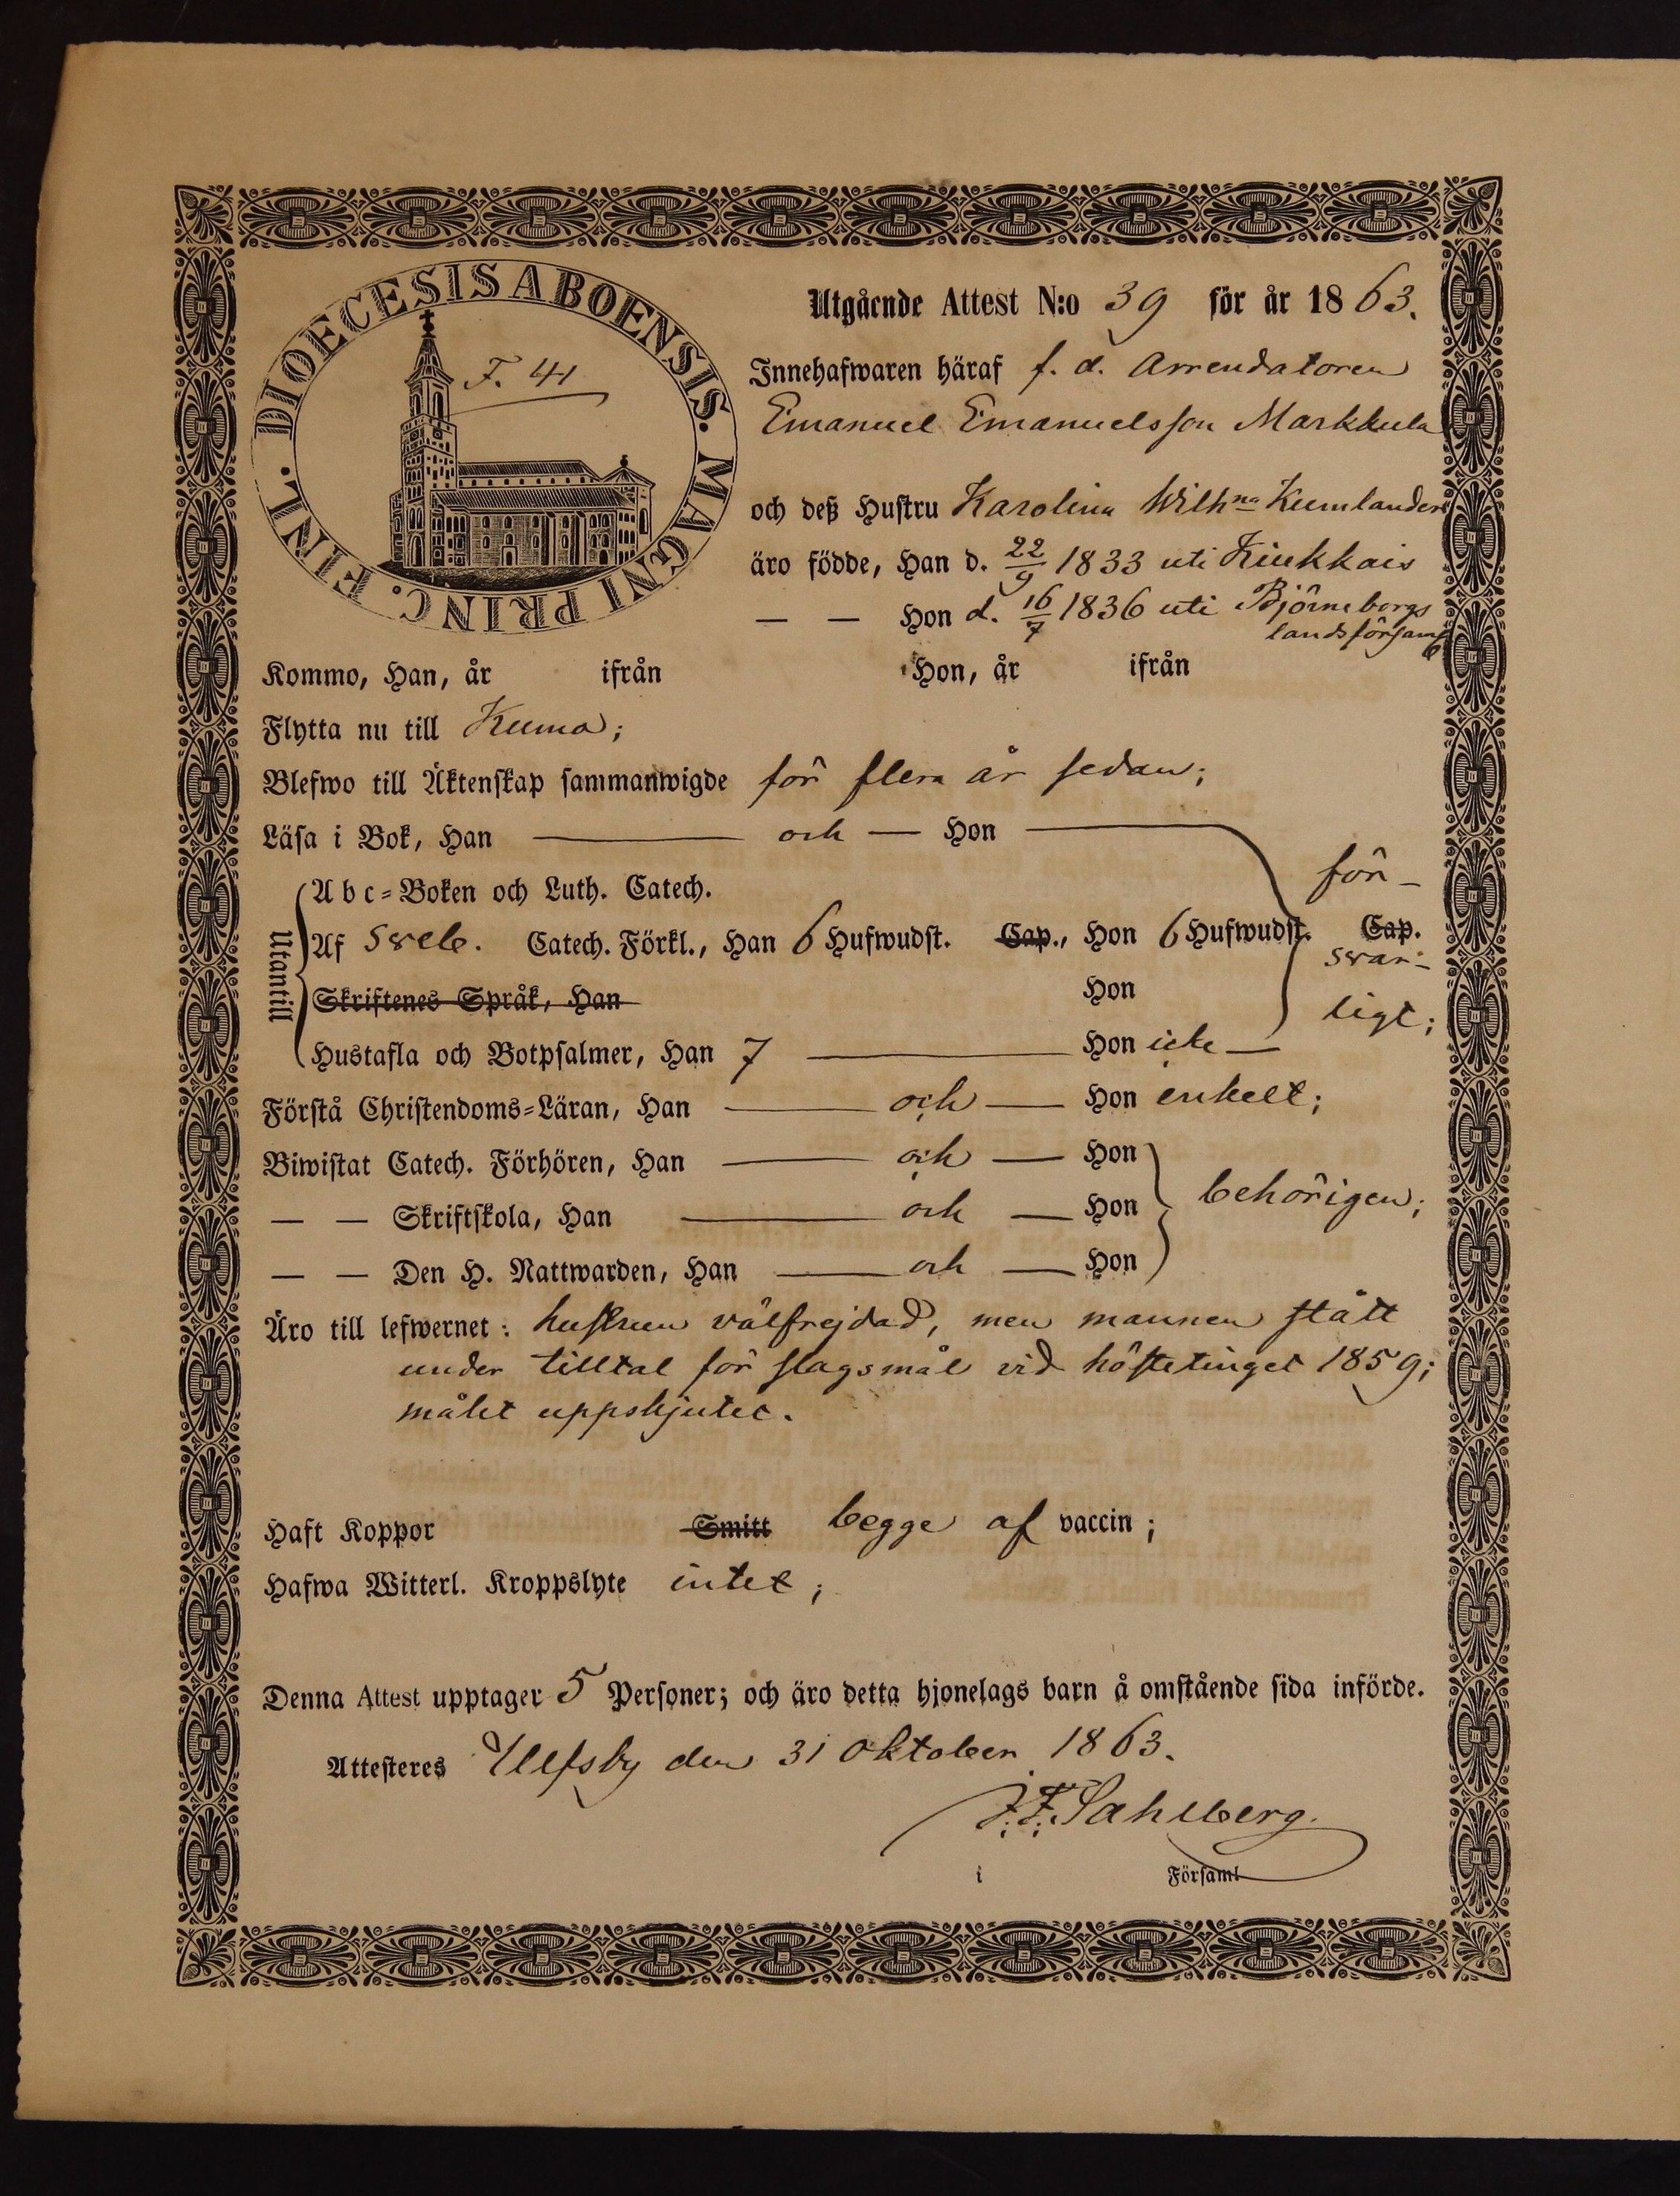 DIOECESIS ABOENSIS. MAGNI PRINC. FINL.
F. 41
Utgående Attest N:o 39 för år 1863.
Innehafwaren häraf f. d. Arrendatoren
Emanuel Emanuelsson Markkula
och deß Hustru Karolina Wilhna Kumlander
äro födde, Han d. 22/9 1833 uti Kiukkais
— — Hon d. 16/7 1836 uti Björneborgs
landsförsaml
Kommo, Han, år ifrån Hon, år ifrån
Flytta nu till Kumo;
Blefwo till Äktenskap sammanwigde för flera år sedan;
Läsa i Bok, Han — och — Hon —
för-
Utantill
Abc-Boken och Luth. Catech.
Af Sveb. Catech. Förkl., Han 6 Hufwudst. Cap., Hon 6 Hufwudst. Cap.
svar-
Skriftenes Språk, Han Hon
ligt;
Hustafla och Botpsalmer, Han 7 — Hon icke —
Förstå Christendoms-Läran, Han — och — Hon enkelt;
Biwistat Catech. Förhören, Han — och — Hon
— — Skriftskola, Han — och — Hon behörigen;
— — Den H. Nattwarden, Han — och — Hon
Äro till lefwernet: hustrun välfrejdad, men mannen stått
under tilltal för slagsmål vid höstetinget 1859;
målet uppskjutet.
Haft Koppor Smitt begge af vaccin;
Hafwa Witterl. Kroppslyte intet;
Denna Attest upptager 5 Personer; och äro detta hjonelags barn å omstående sida införde.
Attesteres Ulfsby den 31 Oktober 1863.
F. F. Sahlberg.
i Församl